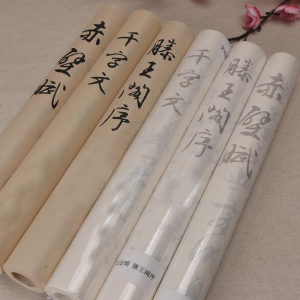 赤壁賦
千字文
滕王閣序
千字文
滕王閣序
赤壁賦